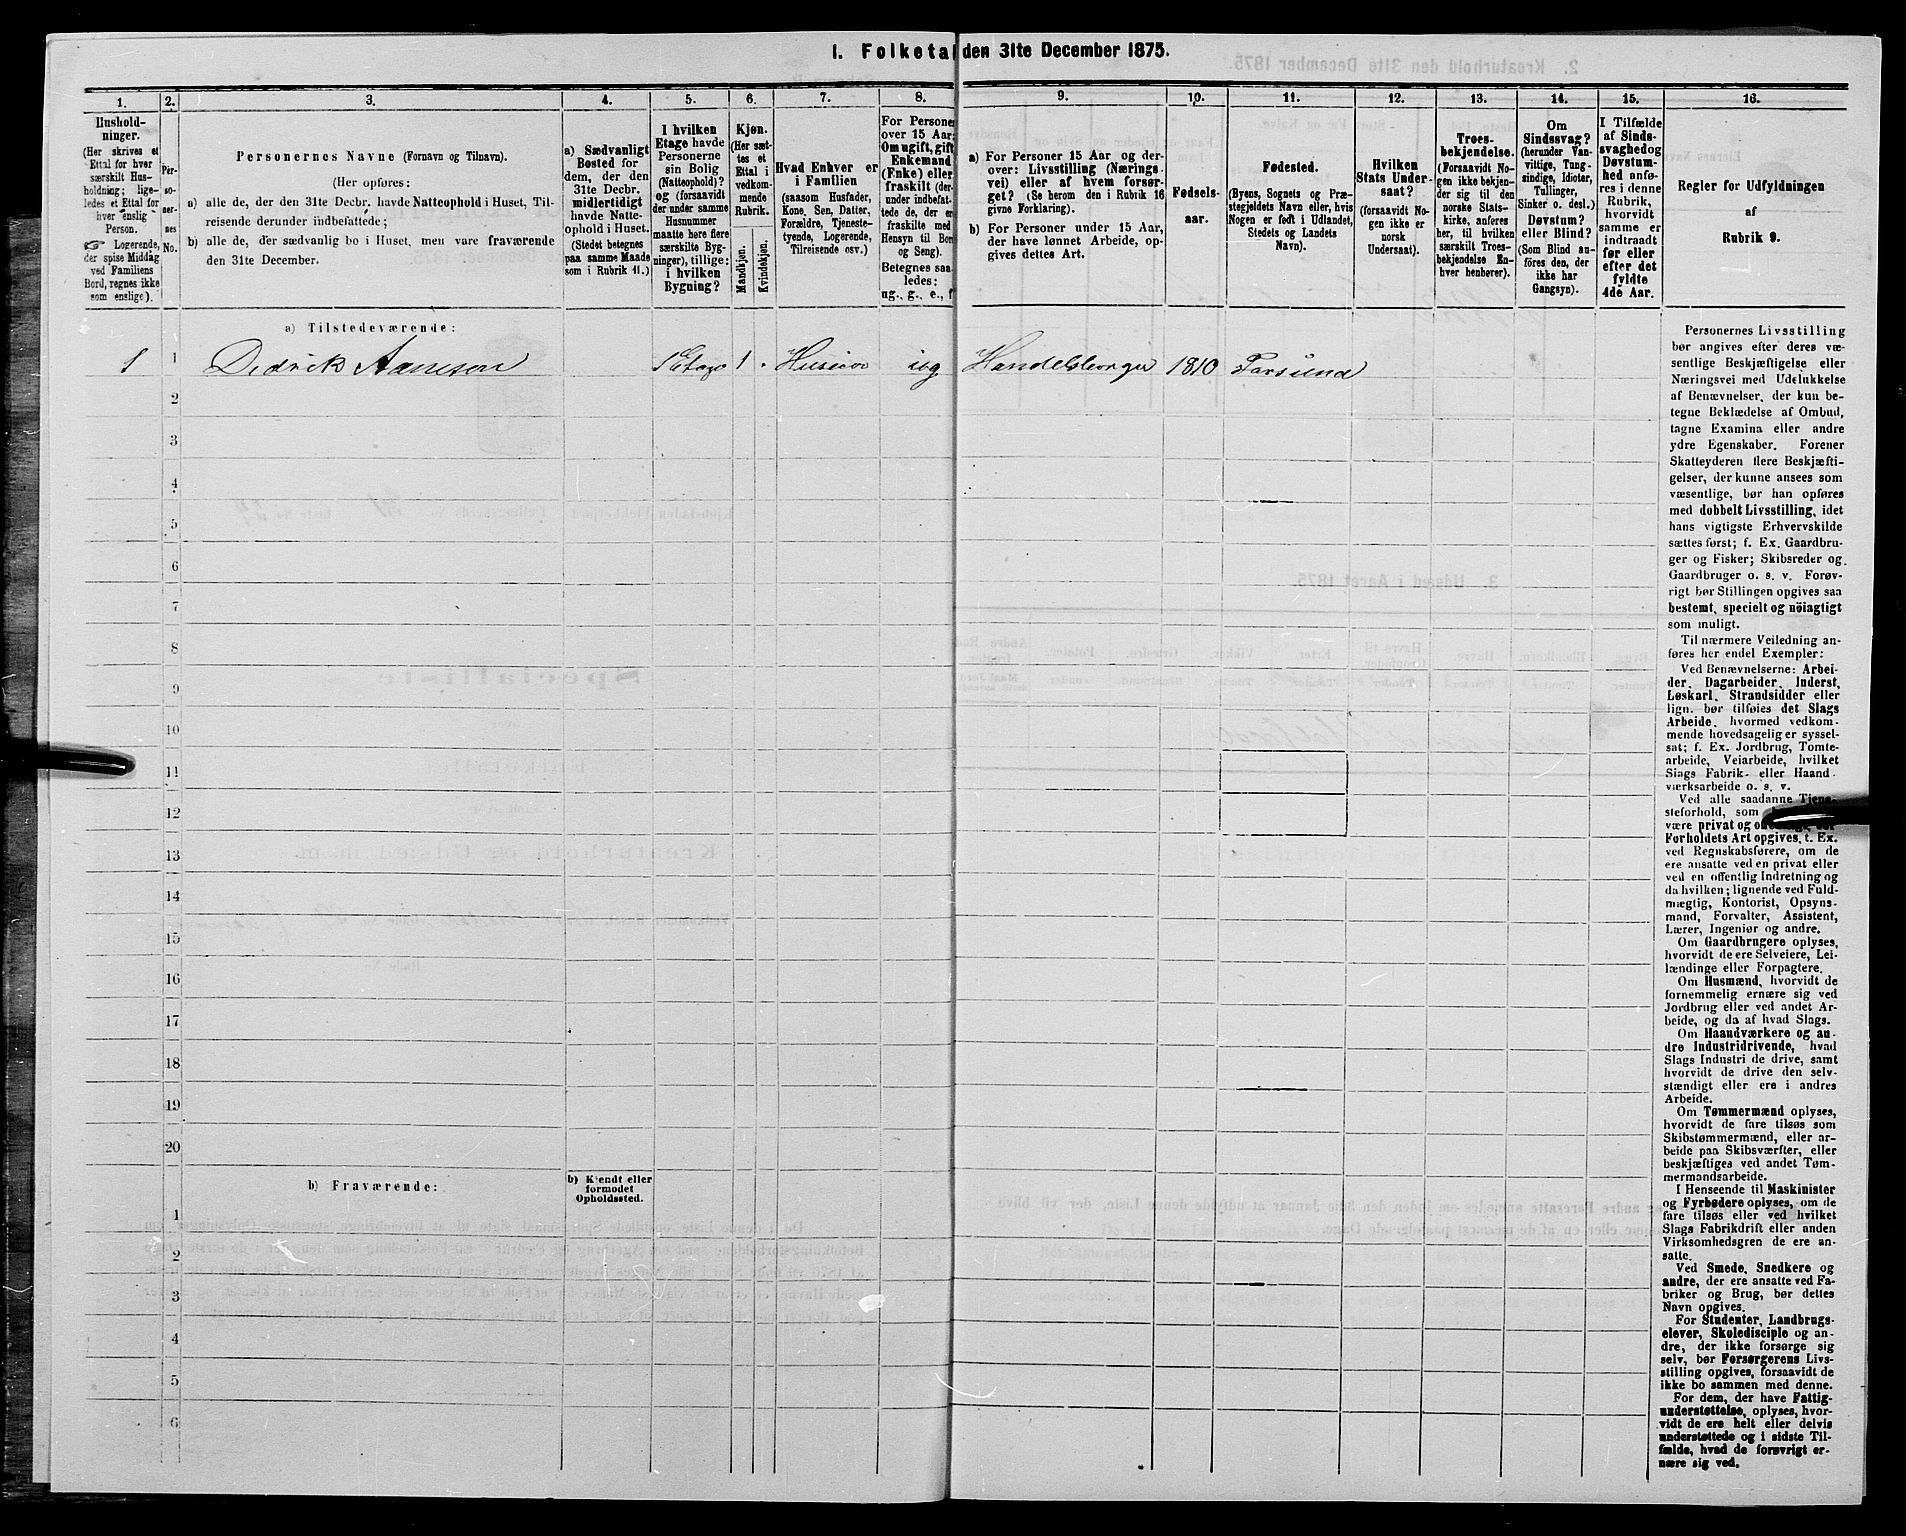 1. Folketal den 31te December 1875.
1. 2. 3. 4. 5. 6. 7. 8. 9. 10. 11. 12. 13. 14. 15. 16.
Hushold-
ninger.
(Her skrives et
Ettal for hver
særskilt Hus-
holdning; lige-
ledes et Ettal for
hver enslig
Person.
☞ Logerende,
der spise Middag
ved Familiens
Bord, regnes ikke
som enslige).
Per-
so-
ner-
nes
No.
Personernes Navne (Fornavn og Tilnavn).
(Her opføres:
a) alle de, der den 31te Decbr. havde Natteophold i Huset, Til-
reisende derunder indbefattede;
b) alle de, der sædvanlig bo i Huset, men vare fraværende
den 31te December.
a) Sædvanligt
Bosted for
dem, der den
31te Decbr.
midlertidigt
havde Natte-
ophold i Huset.
(Stedet betegnes
paa samme Maade
som i Rubrik 11.)
I hvilken
Etage havde
Personerne
sin Bolig
(Natteophold)?
og (forsaavidt
der under samme
Husnummer
maatte høre flere
særskilte Byg-
ninger), tillige:
i hvilken
Bygning?
Kjøn.
(Her sæt-
tes et
Ettal i
vedkom-
mende
Rubrik.
Mandkjøn.
Kvindekjøn.
Hvad Enhver er
i Familien
(saasom Husfader,
Kone, Søn, Datter,
Forældre, Tjeneste-
tyende, Logerende,
Tilreisende osv.)
For Persone
over 15 Aar:
Om ugift, gift
Enkemand
(Enke) eller
fraskilt (der-
under indbefat-
tede de, der er
fraskilte med
Hensyn til Bor
og Seng).
Betegnes saa
ledes:
ug., g., e., f
a) For Personer 15 Aar og der-
over: Livsstilling (Nærings-
vei) eller af hvem forsør-
get? (Se herom den i Rubrik 16
givne Forklaring).
b) For Personer under 15 Aar,
der have lønnet Arbeide, op-
gives dettes Art.
Fødsels-
aar.
Fødested.
(Byens, Sognets og Præ-
stegjeldets Navn eller, hvis
Nogen er født i Udlandet,
Stedets og Landets
Navn).
Hvilken
Stats Under-
saat?
(forsaavidt No-
gen ikke er
norsk
Undersaat).
Troes-
bekjendelse.
(Forsaavidt No-
gen ikke bekjen-
der sig til den
norske Stats-
kirke, anføres
her, til hvilken
særskilt Troes-
bekjendelse En-
hver henhører).
Om
Sindssvag?
(herunder Van-
vittige, Tung-
sindige, Idioter,
Tullinger,
Sinker o. desl.)
Døvstum?
eller Blind?
(Som Blind an-
føres den, der
ikke har
Gangsyn).
I Tilfælde
af Sinds-
svaghed og
Døvstum-
hed anfø-
res i denne
Rubrik,
hvorvidt
samme er
indtraadt
før eller
efter det
fyldte
4de Aar.
Regler for Udfyldningen
af
Rubrik 9.
a) Tilstedeværende:
1 1 Dedrik Aanesen 1 Etage 1 ug Handelsborger 1810 Farsund
2
3
4
5
6
7
8
9
10
11
12
13
14
15
16
17
18
19
20
b) Fraværende:
b) Kjendt eller
formodet
Opholdssted.
1
2
3
4
5
6
Personernes Livsstilling
bør angives efter deres væ-
sentlige Beskjæftigelse eller
Næringsvei med Udelukkelse
af Benævnelser, der kun be-
tegne Beklædelse af Ombud,
tagne Examina eller andre
ydre Egenskaber. Forener
Skatteyderen flere Beskjæfti-
gelser, der kunne ansees som
væsentlige, bør han opføres
med dobbelt Livsstilling, idet
hans vigtigste Erhvervskilde
sættes først; f. Ex. Gaardbru-
ger og Fisker; Skibsreder og
Gaardbruger o. s. v. Forøv-
rigt bør Stillingen opgives saa
bestemt, specielt og nöiagtigt
som muligt.
Til nærmere Veiledning an-
føres her endel Exempler:
Ved Benævnelserne: Arbei-
der, Dagarbeider, Inderst,
Løskarl, Strandsidder eller
lign. bør tilføies det Slags
Arbeide, hvormed vedkom-
mende hovedsagelig er syssel-
sat; f. Ex. Jordbrug, Tomte-
arbeide, Veiarbeide, hvilket
Slags Fabrik- eller Haand
værksarbeide o. s. v.
Ved alle saadanne Tjene-
steforhold, som
være privat og
Forholdets Art opgives, t. Ex.
ved Regnskabsførere, om de
ere ansatte ved en privat eller
ved en offentlig Indretning og
da hvilken; lignende ved Fuld-
mægtig, Kontorist, Opsyns-
mand, Forvalter, Assistent,
Lærer, Ingeniør og andre.
Om Gaardbrugere oplyses,
hvorvidt de ere Selveiere, Lei-
lændinge eller Forpagtere.
Om Husmænd, hvorvidt de
fornemmelig ernære sig ved
Jordbrug eller ved andet Ar-
beide, og da af hvad Slags.
Om Haandværkere og an-
dre Industridrivende, hvad
Slags Industri de drive, samt
hvorvidt de drive den selv-
stændigt eller ere i andres
Arbeide.
Om Tømmermænd oplyses,
hvorvidt de fare tilsøs som
Skibstømmermænd, eller ar-
beide paa Skibsværfter, eller
beskjæftiges ved andet Tøm-
mermandsarbeide.
I Henseende til Maskinister
og Fyrbødere oplyses, om de
fare tilsøs eller ved hvilket
Slags Fabrikdrift eller anden
Virksomhedsgren de ere an-
satte.
Ved Smede, Snedkere og
andre, der ere ansatte ved Fa-
briker og Brug, bør dettes
Navn opgives.
For Studenter, Landbrugs-
elever, Skoledisciple og an-
dre, der ikke forsørge sig
selv, bør Forsørgerens Livs-
stilling opgives, forsaavidt de
ikke bo sammen med denne.
For dem, der have Fattig-
understøttelse, oplyses, hvor-
vidt de ere helt eller delvis
understøttede og i sidste Til-
fælde, hvad de forøvrigt er-
nære sig ved.